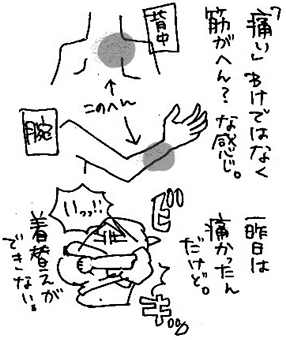 「痛い」わけではなく
筋がへん？
な感じ。
背中
このへん
腕
昨日は
痛かったん
だけど。
ビキッ
いっっ!!
着替えが
できない。